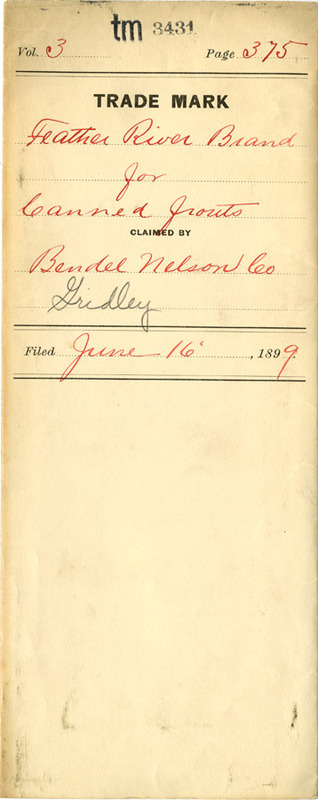 tm 3431
Vol. 3 Page 375
TRADE MARK
Feather River Brand
for
Canned Fruits
CLAIMED BY
Bendel Nelson Co
Gridley
Filed June 16 , 1899.